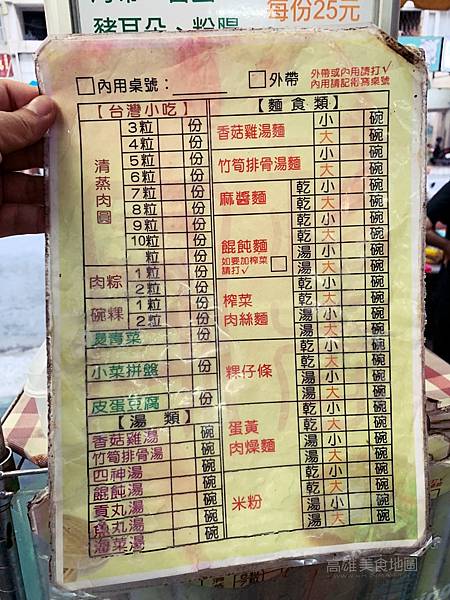 豬耳朵、粉腸
每份25元
內用桌號：
外帶
外帶或內用請打✓
內用請記術寫桌號
【台灣小吃】
清蒸肉圓
3粒 份
4粒 份
5粒 份
6粒 份
7粒 份
8粒 份
9粒 份
10粒 份
粒 份
肉粽
1粒 份
2粒 份
碗粿
1粒 份
2粒 份
燙青菜 份
小菜拼盤 份
皮蛋豆腐 份
【湯類】
香菇雞湯 碗
竹筍排骨湯 碗
四神湯 碗
餛飩湯 碗
貢丸湯 碗
魚丸湯 碗
海菜湯 碗
【麵食類】
香菇雞湯麵
小 碗
大 碗
竹筍排骨湯麵
小 碗
大 碗
麻醬麵
乾 小 碗
乾 大 碗
餛飩麵
如要加榨菜
請打✓
乾 小 碗
乾 大 碗
湯 小 碗
湯 大 碗
榨菜
肉絲麵
乾 小 碗
乾 大 碗
湯 小 碗
湯 大 碗
粿仔條
乾 小 碗
乾 大 碗
湯 小 碗
湯 大 碗
蛋黃
肉燥麵
乾 小 碗
乾 大 碗
湯 小 碗
湯 大 碗
米粉
乾 小 碗
乾 大 碗
湯 小 碗
湯 大 碗
高雄美食地圖